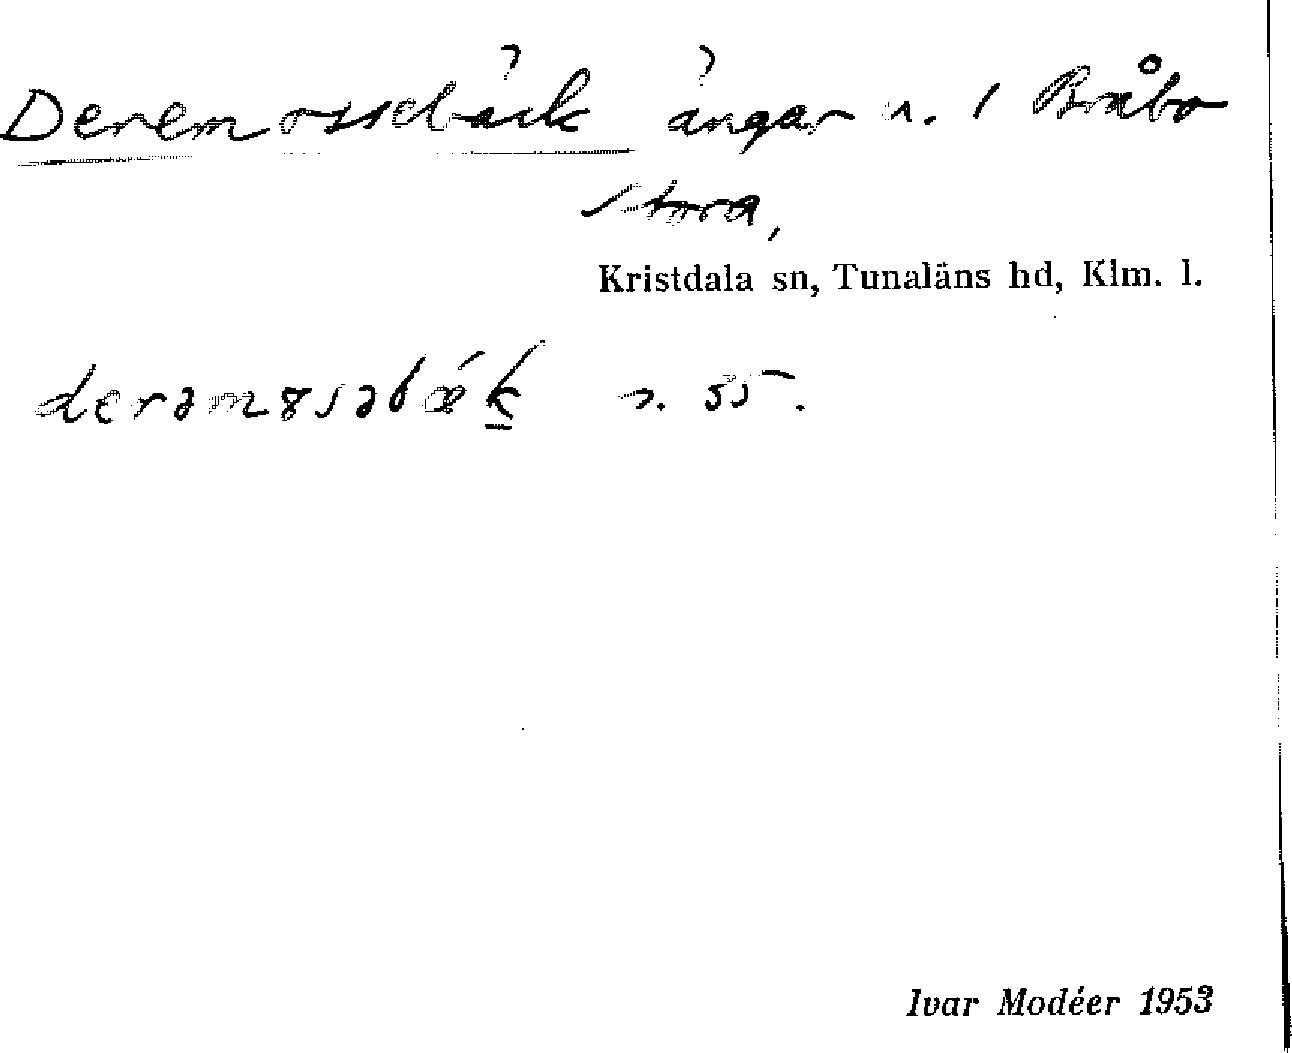 Deremossebäck ängar n. 1 Bråbo
Stora,
Kristdala sn, Tunaläns hd, Klm. l.
derəmɤsəbǽk s. 55.
Ivar Modéer 1953